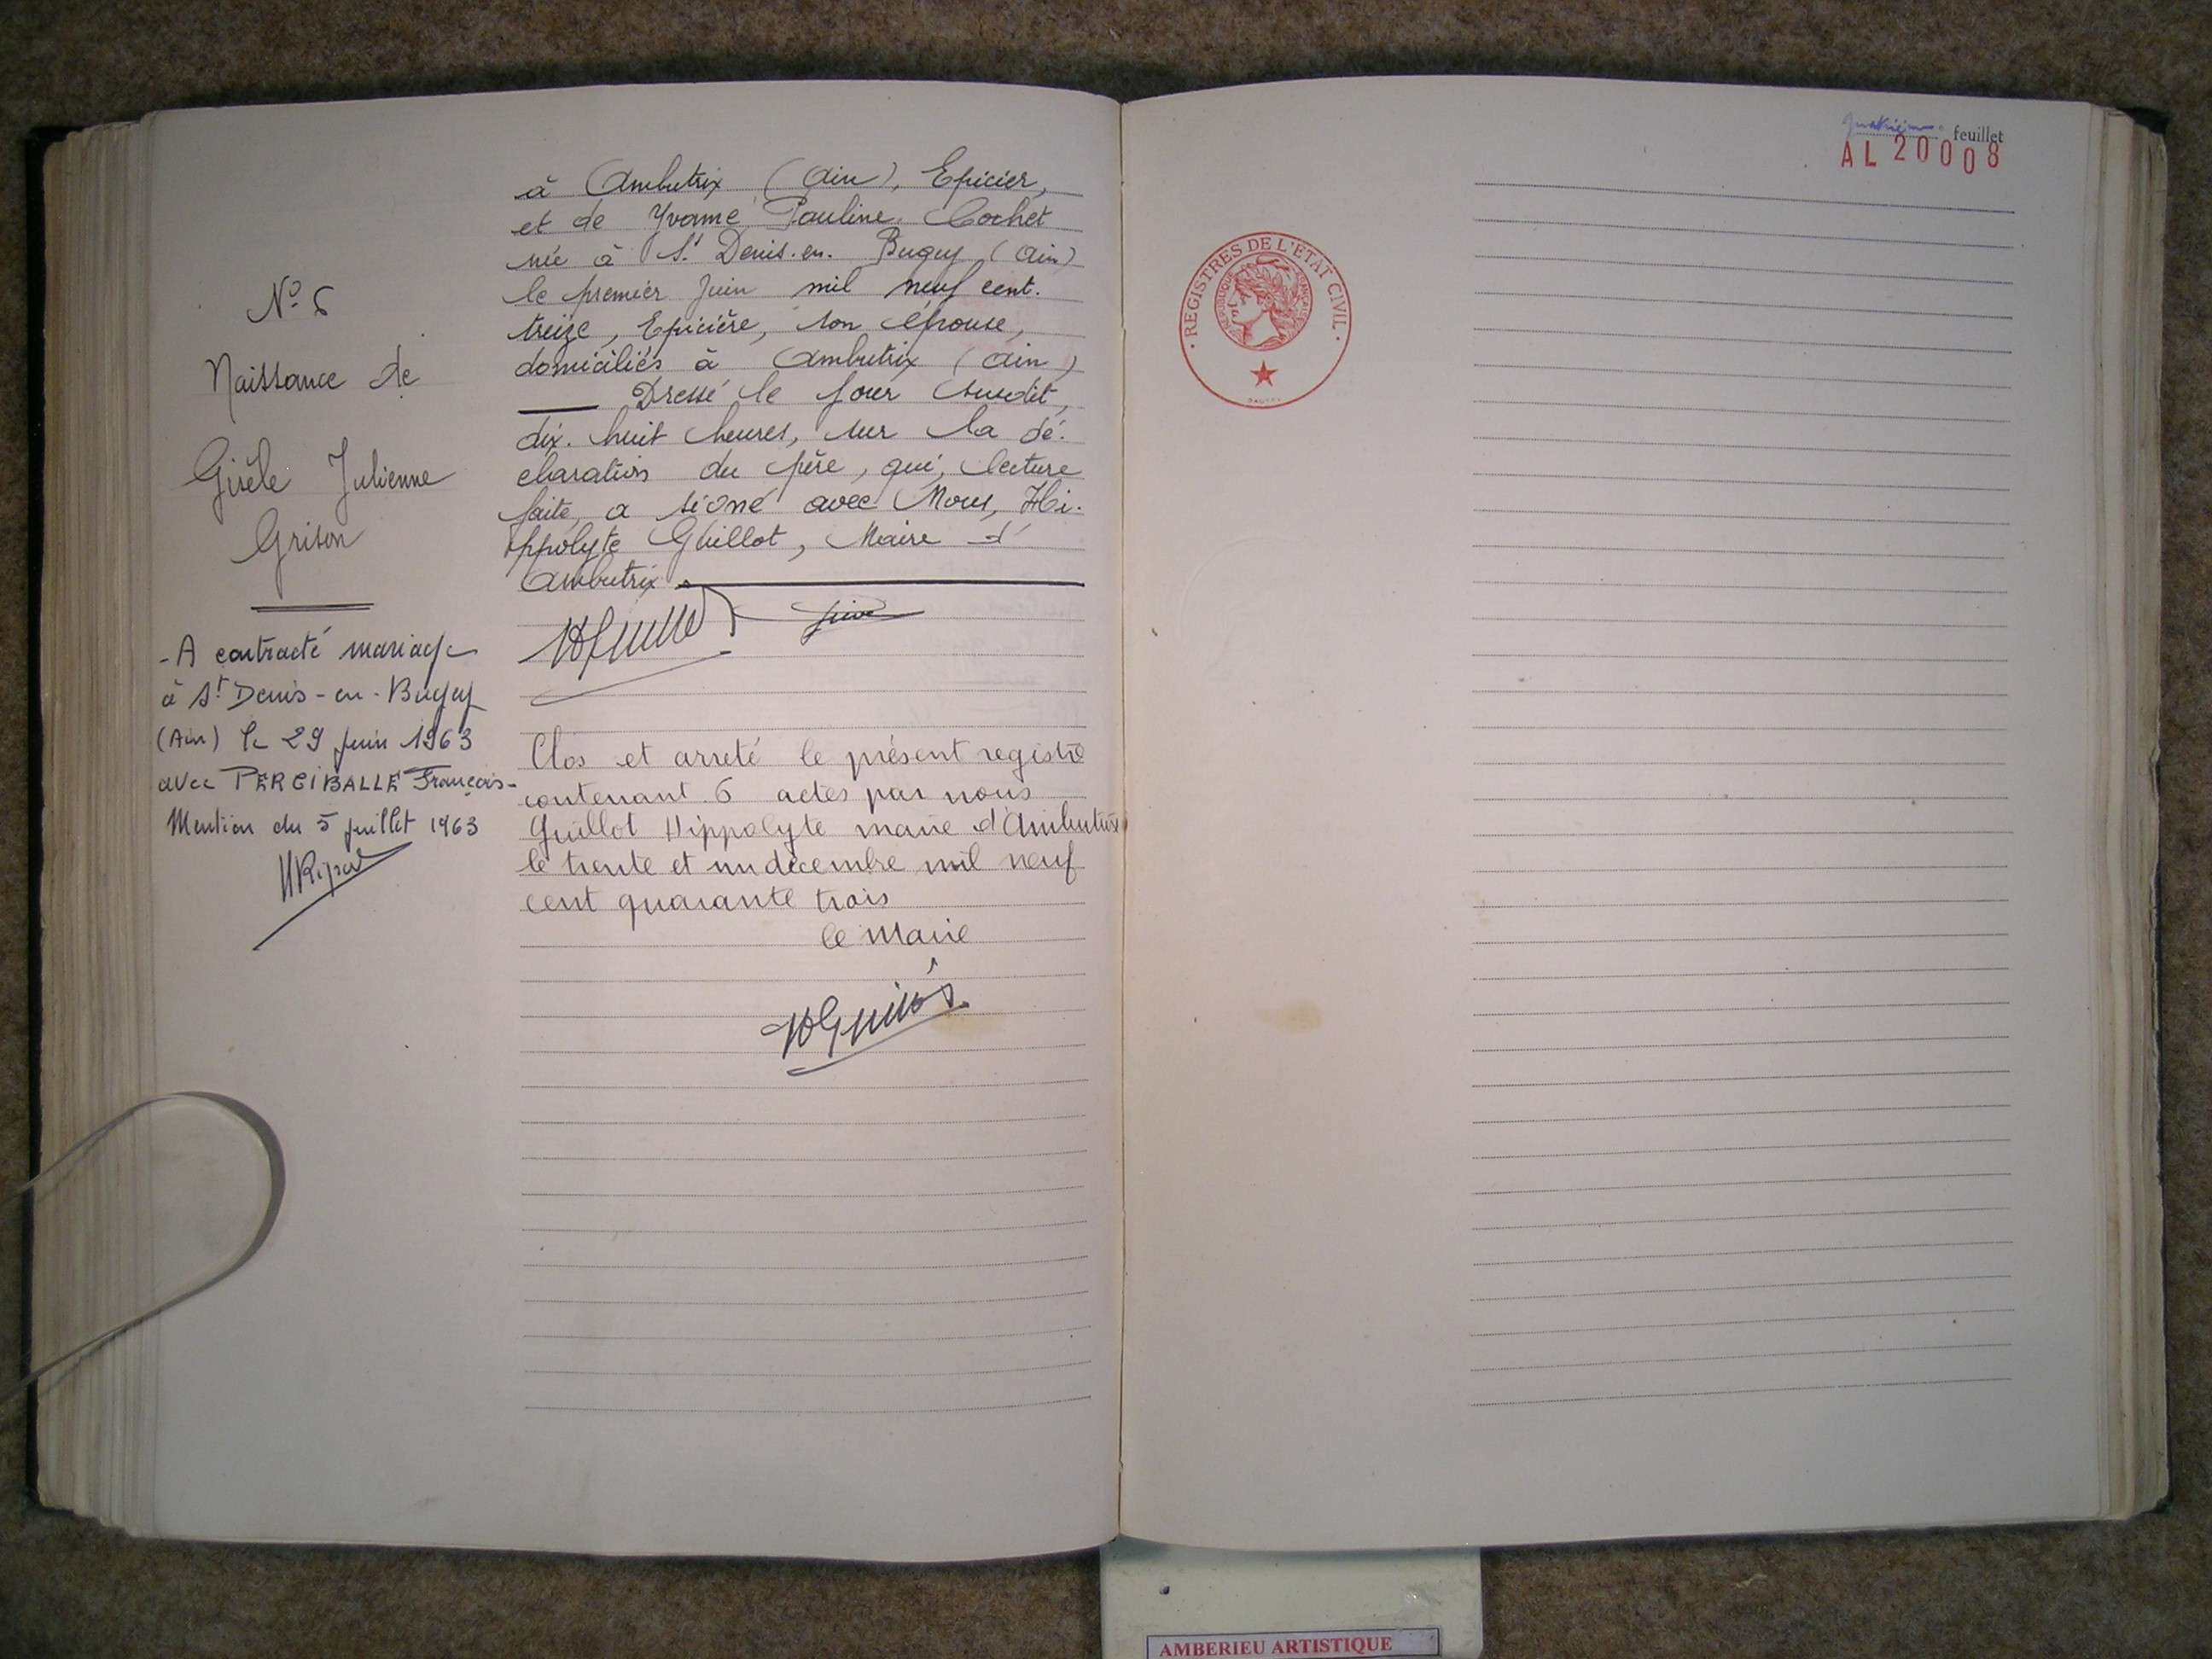 N° 6
Naissance de
Gisèle Julienne
Grison
- A contracté mariage
à St Denis-en-Bugey
(Ain) le 29 juin 1963
avec PERCIBALLE François-
Mention du 5 juillet 1963
à Ambutrix (Ain), Epicier,
et de Yvonne Pauline Cochet
née à St Denis-en-Bugey (Ain)
le premier Juin mil neuf cent.
treize, Epicière, son épouse,
domiciliés à Ambutrix (Ain)
Dressé le jour susdit,
dix-huit heures, sur la dé-
claration du père, qui, lecture
faite, a signé avec Nous, Hi-
ppolyte Guillot, Maire d'
Ambutrix
Clos et arreté le présent registre
contenant 6 actes par nous
Guillot Hippolyte maire d'Ambutrix
le trente et un decembre mil neuf
cent quarante trois
le Maire
feuillet
AL 20008
· REGISTRES DE L'ÉTAT CIVIL ·
RÉPUBLIQUE FRANÇAISE
AMBERIEU ARTISTIQUE